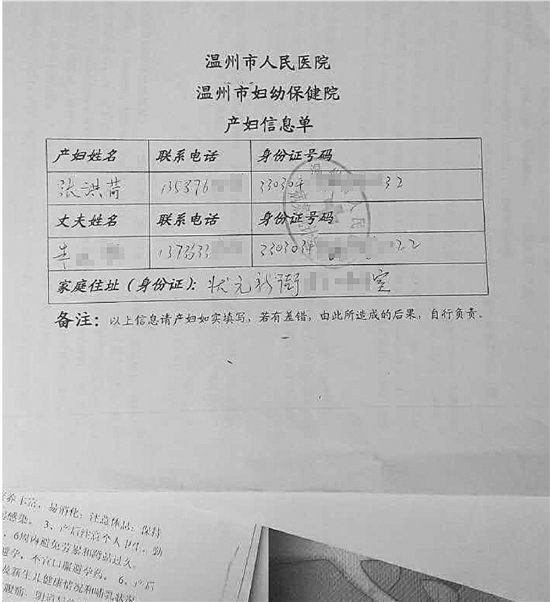 温州市人民医院
温州市妇幼保健院
产妇信息单
产妇姓名 联系电话 身份证号码
张洪苗 135876 330304 32
丈夫姓名 联系电话 身份证号码
137333 330304 22
家庭住址（身份证）：状元新街 室
备注：以上信息请产妇如实填写，若有差错，由此所造成的后果，自行负责。
易消化；注意休息；保持
感染。3、产后注意个人卫生，勤
6周内避免劳累和蹲站过久。
避孕，不宜口服避孕药。6、产后
及新生儿健康情况和哺乳状况